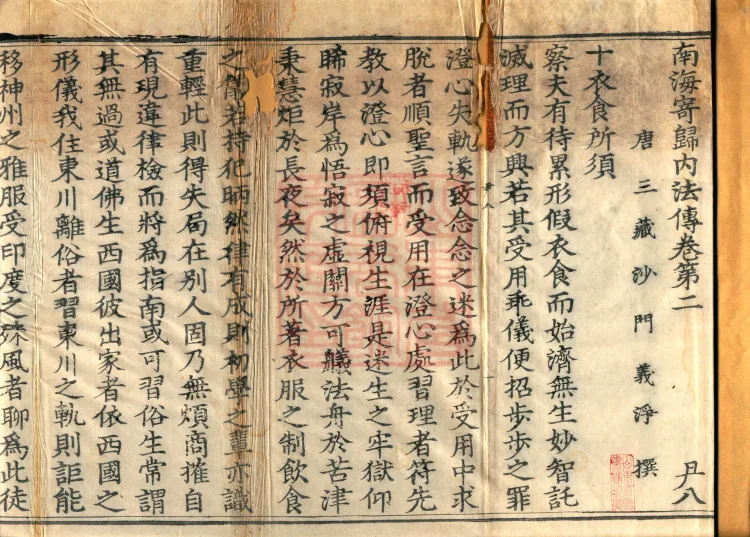 南海寄歸内法傳卷第二 丹八
唐三藏沙門義淨撰
十衣食所須
察夫有待累形假衣食而始濟無生妙智託
滅理而方興若其受用乖儀便招步步之罪
澄心失軌遂致念念之迷爲此於受用中求
脫者順聖言而受用在澄心處習理者符先
教以澄心即須俯視生涯是迷生之牢獄仰
睎寂岸爲悟寂之虛關方可艤法舟於苦津
秉慧炬於長夜矣然於所著衣服之制飲食
之儀若持犯昞然律有成則初學之輩亦識
重輕此則得失局在別人固乃無煩商搉自
有現違律檢而將爲指南或可習俗生常謂
其無過或道佛生西國彼出家者依西國之
形儀我住東川離俗者習東川之軌則詎能
移神州之雅服受印度之殊風者聊爲此徒